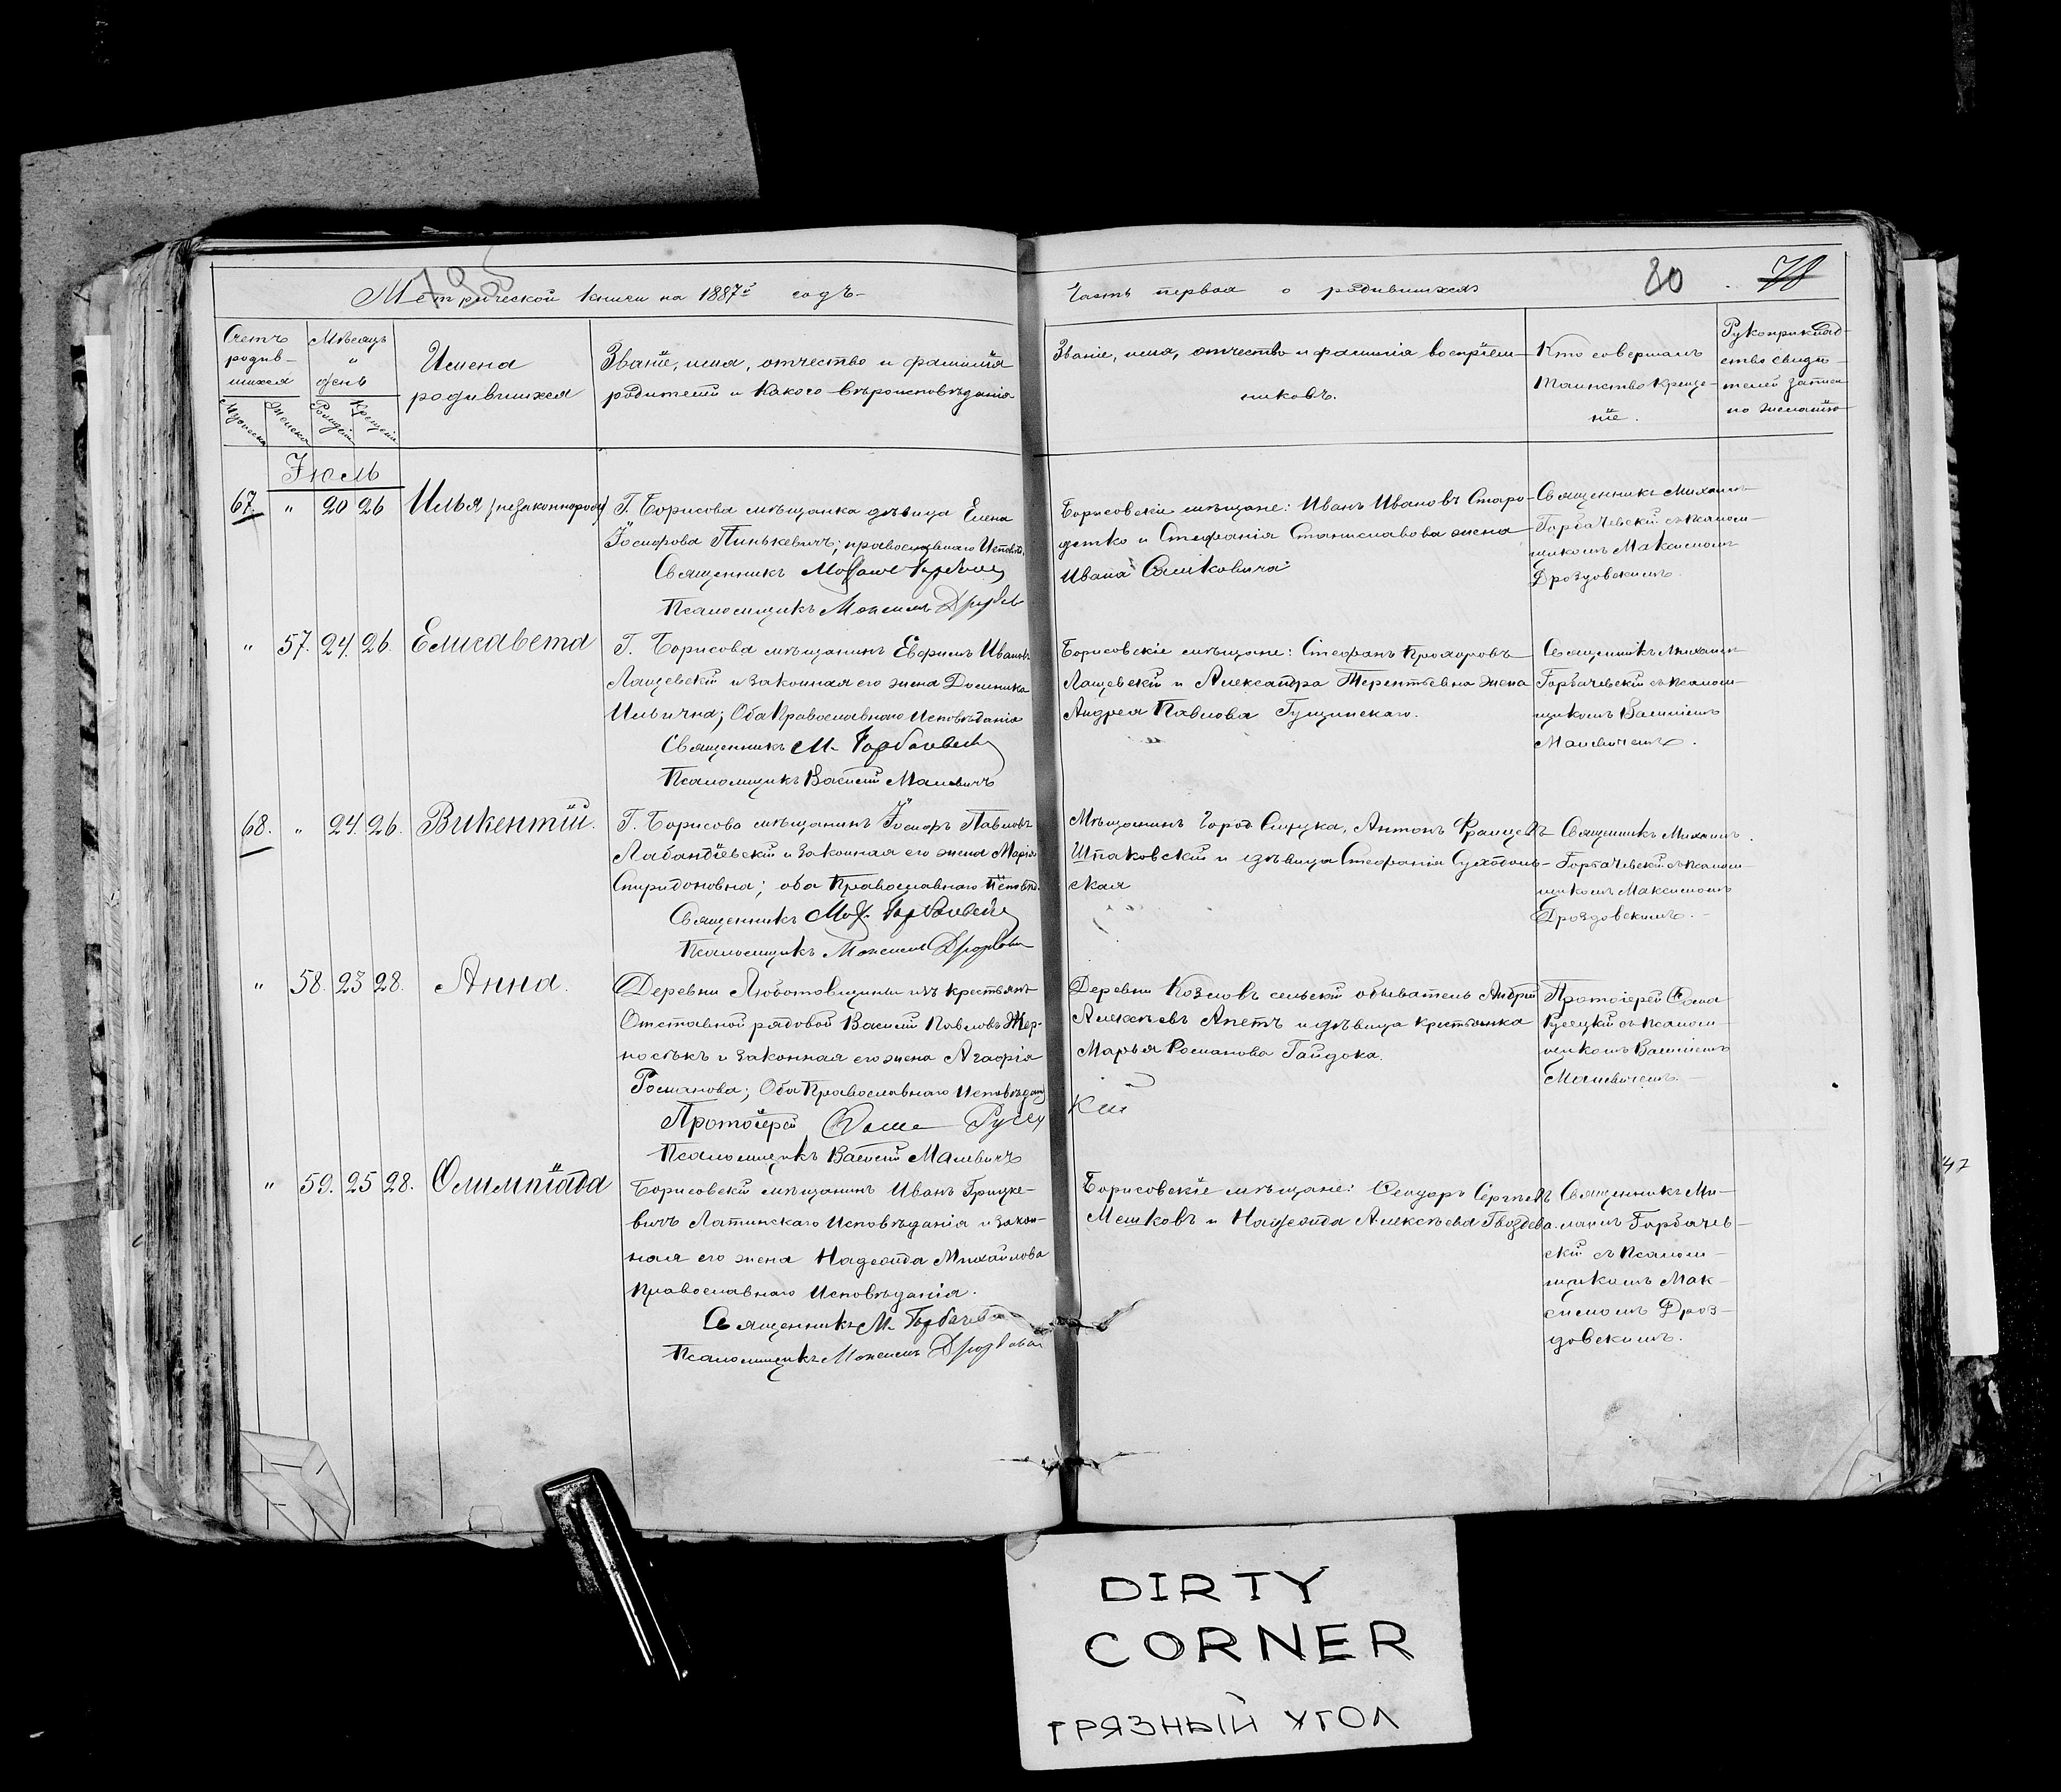 Метрической книги на 1887й годъ
Часть первая о родившихся
80
78
Счетъ родив-шихся
Мужеска
Женска
Мѣсяцъ и день
Рожденія
Крещенія
Имена
родившихся
Званіе, имя, отчество и фамилія
родителей и какого вѣроисповѣданія
Званіе, имя, отчество и фамилія воспріем-
никовъ.
Кто совершалъ
таинство креще-
нія.
Рукоприклад-
ство свидѣ-
телей записи
по желанію
Іюль
67. " 20 26 Илья (незаконнорож)
Г. Борисова мѣщанка дѣвица Елена
Іосифова Пинькевичъ; православнаго Исповѣд.
Священникъ
Псаломщикъ Максимъ
Борисовскіе мѣщане: Иванъ Ивановъ Старо-
детко и Стефанія Станиславова жена
Ивана
Священникъ Михаилъ
Горбачевскій съ псалом-
щикомъ Максимомъ
Дроздовскимъ.
" 57. 24. 26. Елисавета
Г. Борисова мѣщанинъ Евфимъ Ивановъ
Лащевскій и законная его жена Домника
Ильична; Оба Православнаго Исповѣданія
Священникъ М. Горбачевскій
Псаломщикъ Василій Малевичъ
Борисовскіе мѣщане: Стефанъ Прохоровъ
Лащевскій и Александра Терентьевна жена
Андрея Павлова Гущинскаго.
Священникъ Михаилъ
Горбачевскій съ псалом-
щикомъ Василіемъ
Малевичемъ.
68. " 24. 26. Викентій.
Г. Борисова мѣщанинъ Іосифъ Павловъ
Лабандіевскій и законная его жена Марія
Спиридоновна; оба Православнаго Исповѣд.
Священникъ Мих. Горбачевскій
Псаломщикъ Максимъ Дроздовскій
Мѣщанинъ Город. Слуцка, Антонъ Францевъ
Шпаковскій и дѣвица Стефанія Сухдоль-
ская
Священникъ Михаилъ
Горбачевскій съ псалом-
щикомъ Максимомъ
Дроздовскимъ.
" 58. 23 28. Анна.
Деревни Любатовщины изъ крестьянъ
Отставной рядовой Василій Павловъ Жер-
носѣкъ и законная его жена Агафія
Романова; Оба Православнаго Исповѣдан.
Протоіерей Фома Русец
кій
Псаломщикъ Василій Малевичъ
Деревни Козловъ сельскій обыватель Андрей
Алексѣевъ Апетъ и дѣвица крестьянка
Марья Романова Гайдока.
Протоіерей Фома
Русецкій съ псалом-
щикомъ Василіемъ
Малевичемъ.
" 59. 25 28. Олимпіада
Борисовскій мѣщанинъ Иванъ Грицке-
вичъ Латинскаго Исповѣданія и закон-
ная его жена Надежда Михайлова
Православнаго Исповѣданія.
Священникъ М. Горбачевскій
Псаломщикъ Максимъ Дроздовскій
Борисовскіе мѣщане: Ѳеодоръ Сергѣевъ
Мешковъ и Надежда Алексѣева Гвоздева.
Священникъ Ми-
хаилъ Горбачев-
скій съ псалом-
щикомъ Мак-
симомъ Дроз-
довскимъ.
47
DIRTY
CORNER
ГРЯЗНЫЙ УГОЛ